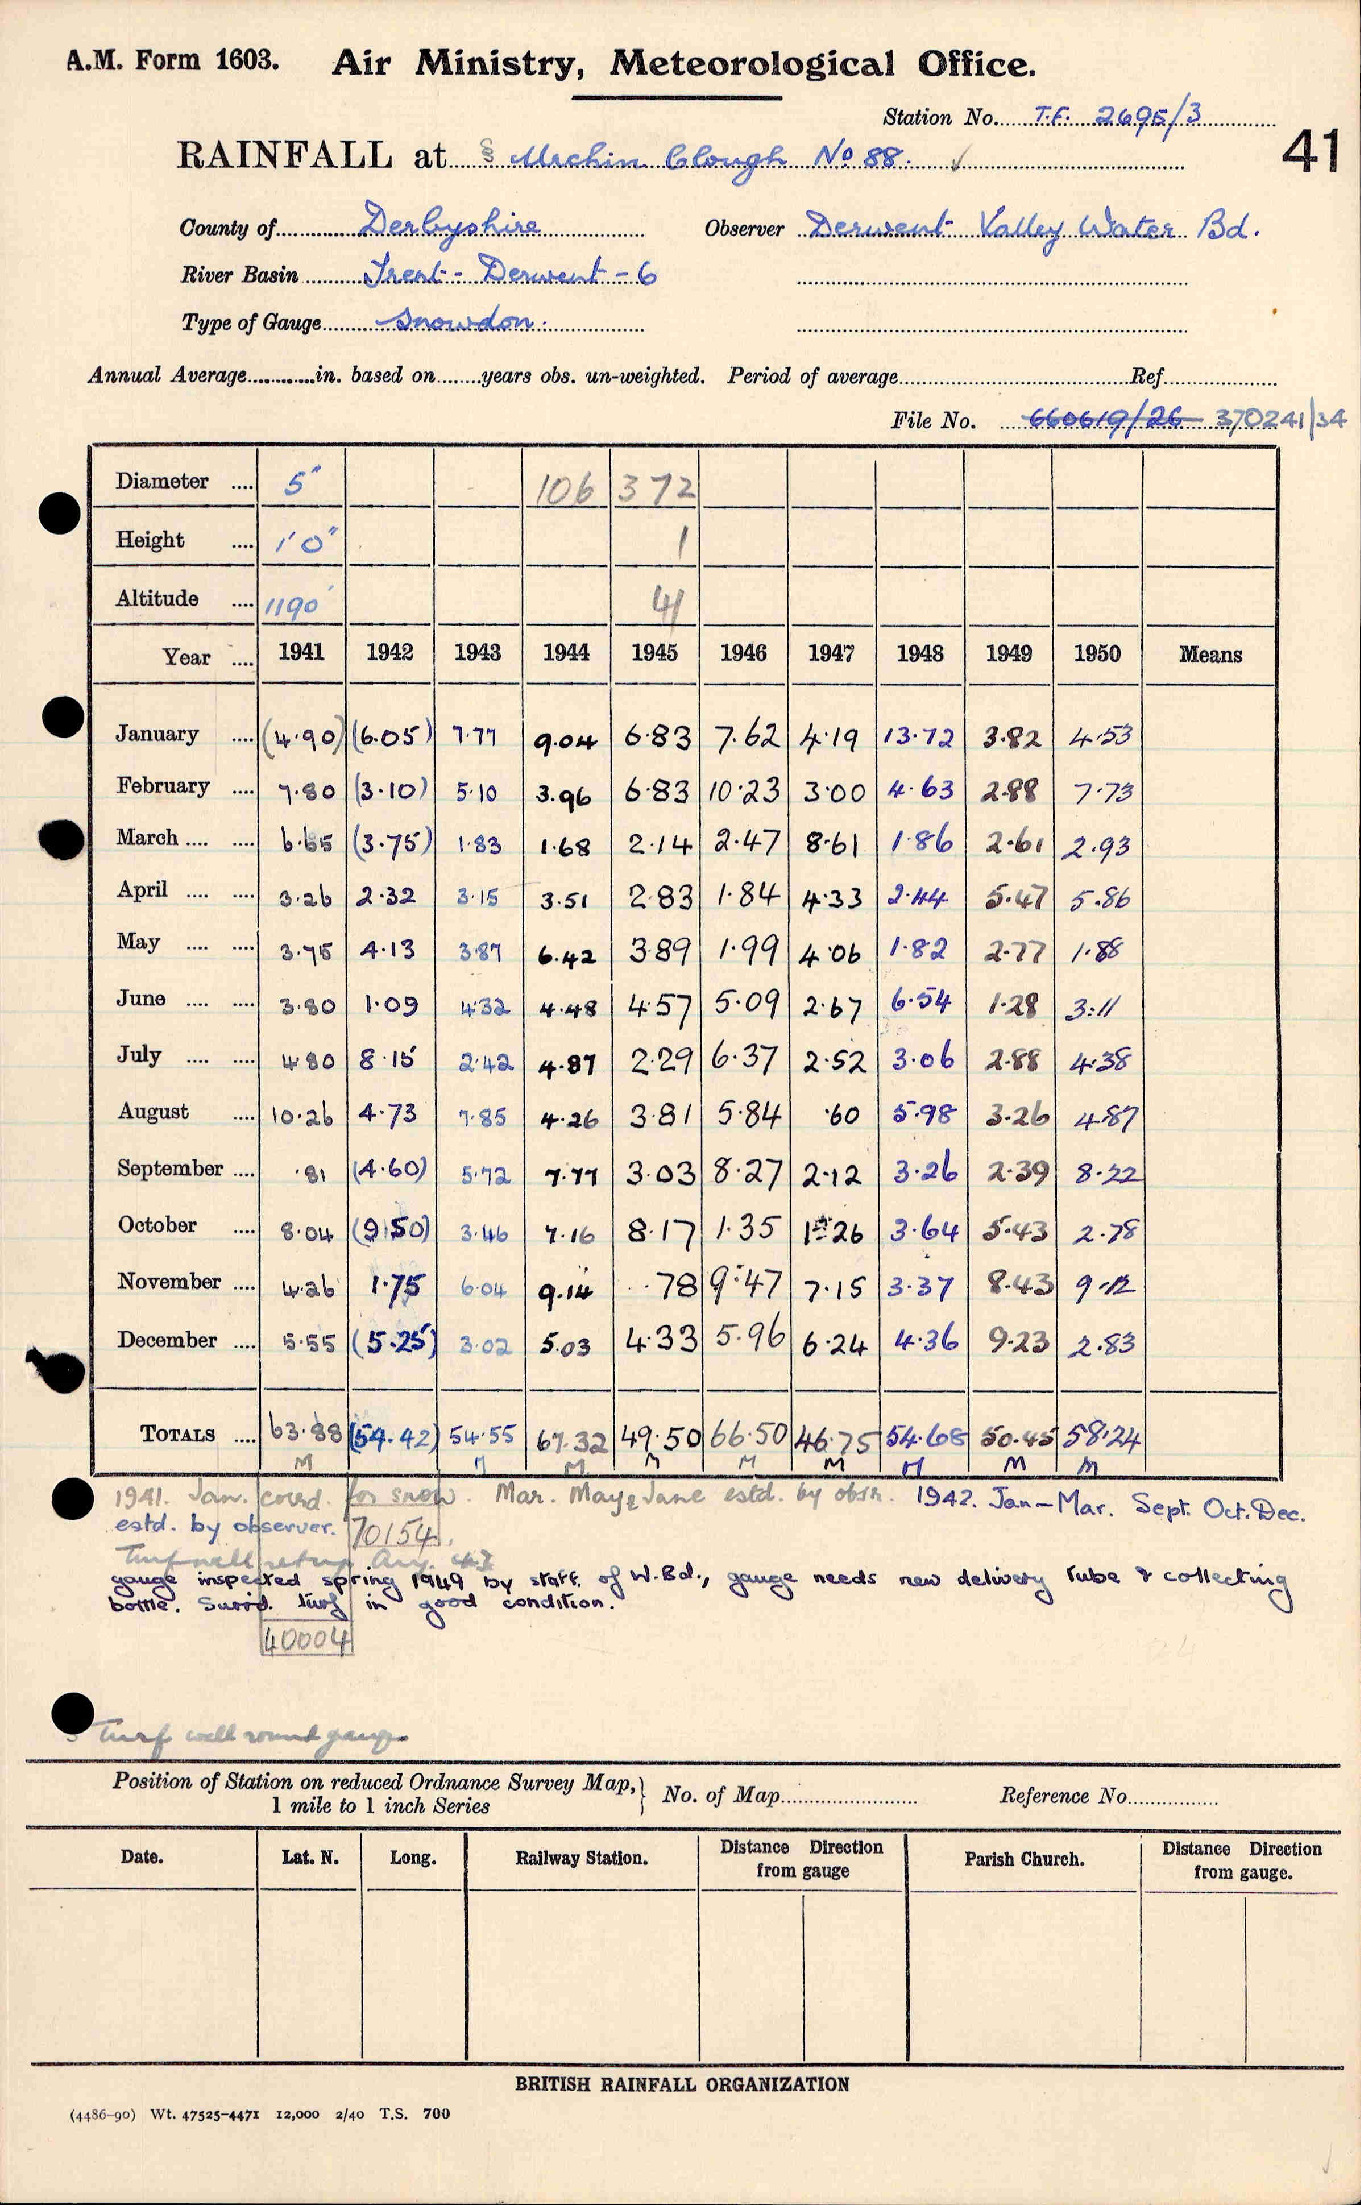 A.M. Form 1603. Air Ministry, Meteorological Office.
Station No. T.F. 2695/3
RAINFALL at § Urchin Clough No 88. ✓ 41
County of Derbyshire Observer Derwent Valley Water Bd.
River Basin Trent - Derwent - 6
Type of Gauge Snowdon.
Annual Average............in. based on........years obs. un-weighted. Period of average.......... Ref..........
File No. 660619/26 370241/34
Diameter .... 5" 106 372
Height .... 1'0" 1
Altitude .... 1190' 41
Year .... 1941 1942 1943 1944 1945 1946 1947 1948 1949 1950 Means
January .... (4.90) (6.05) 7.77 9.04 6.83 7.62 4.19 13.72 3.82 4.53
February .... 7.80 (3.10) 5.10 3.96 6.83 10.23 3.00 4.63 2.88 7.73
March .... .... 6.65 (3.75) 1.83 1.68 2.14 2.47 8.61 1.86 2.61 2.93
April .... .... 3.26 2.32 3.15 3.51 2.83 1.84 4.33 2.44 5.47 5.86
May .... .... 3.75 4.13 3.87 6.42 3.89 1.99 4.06 1.82 2.77 1.88
June .... .... 3.80 1.09 4.32 4.48 4.57 5.09 2.67 6.54 1.28 3.11
July .... .... 4.80 8.15 2.42 4.87 2.29 6.37 2.52 3.06 2.88 4.38
August .... 10.26 4.73 7.85 4.26 3.81 5.84 .60 5.98 3.26 4.87
September .... .81 (4.60) 5.72 7.77 3.03 8.27 2.12 3.26 2.39 8.22
October .... 8.04 (9.50) 3.46 7.16 8.17 1.35 1.26 3.64 5.43 2.78
November .... 4.26 1.75 6.04 9.14 .78 9.47 7.15 3.37 8.43 9.12
December .... 5.55 (5.25) 3.02 5.03 4.33 5.96 6.24 4.36 9.23 2.83
TOTALS .... 63.88 (54.42) 54.55 67.32 49.50 66.50 46.75 54.68 50.45 58.24
M M M M M M M M M
1941. Jan. coord. for snow. Mar. May & June estd. by obsr. 1942. Jan - Mar. Sept. Oct. Dec.
estd. by observer. 70154
Turf wall retup Aug. 43
gauge inspected spring 1949 by staff of W.Bd., gauge needs new delivery tube & collecting
bottle. Surrd. turf in good condition.
40004
Turf wall round gauge
Position of Station on reduced Ordnance Survey Map, } No. of Map.......... Reference No..........
1 mile to 1 inch Series
Date. Lat. N. Long. Railway Station. Distance from gauge Direction Parish Church. Distance Direction from gauge.
BRITISH RAINFALL ORGANIZATION
(4486-90) Wt. 47525-4471 12,000 2/40 T.S. 700